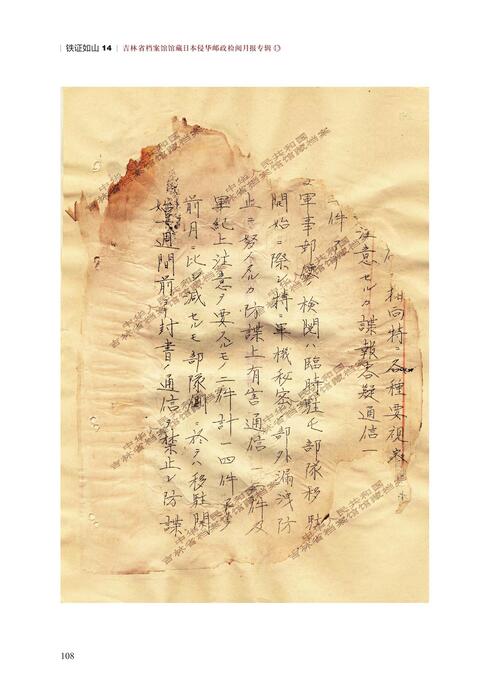 铁证如山 14 吉林省档案馆馆藏日本侵华邮政检阅月报专辑
相向特ニ各種要視察
注意セルカ諜報容疑通信一
二件
軍事郵便ノ検閲ハ臨時駐屯部隊移駐
開始ニ際シ特ニ軍機秘密ノ部外漏洩防
止ニ努メタルカ防諜上有害通信一二件及
軍紀上注意ヲ要スルモノ二件計一四件
前月ニ比シ減セルモ部隊側ニ於テハ移駐開
始一週間前ヨリ封書ノ通信ヲ禁止シ防諜
中华人民共和国
吉林省档案馆馆藏档案
108